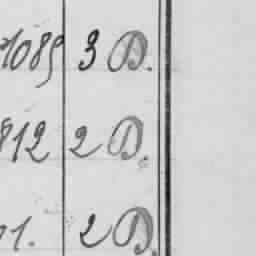 1089 3 D.
812 2 D.
1. 2 D.